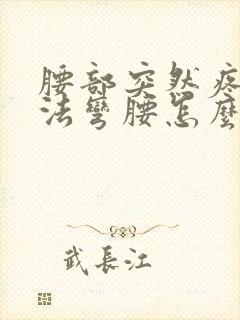 腰部突然疼
法彎腰怎麼
武長江